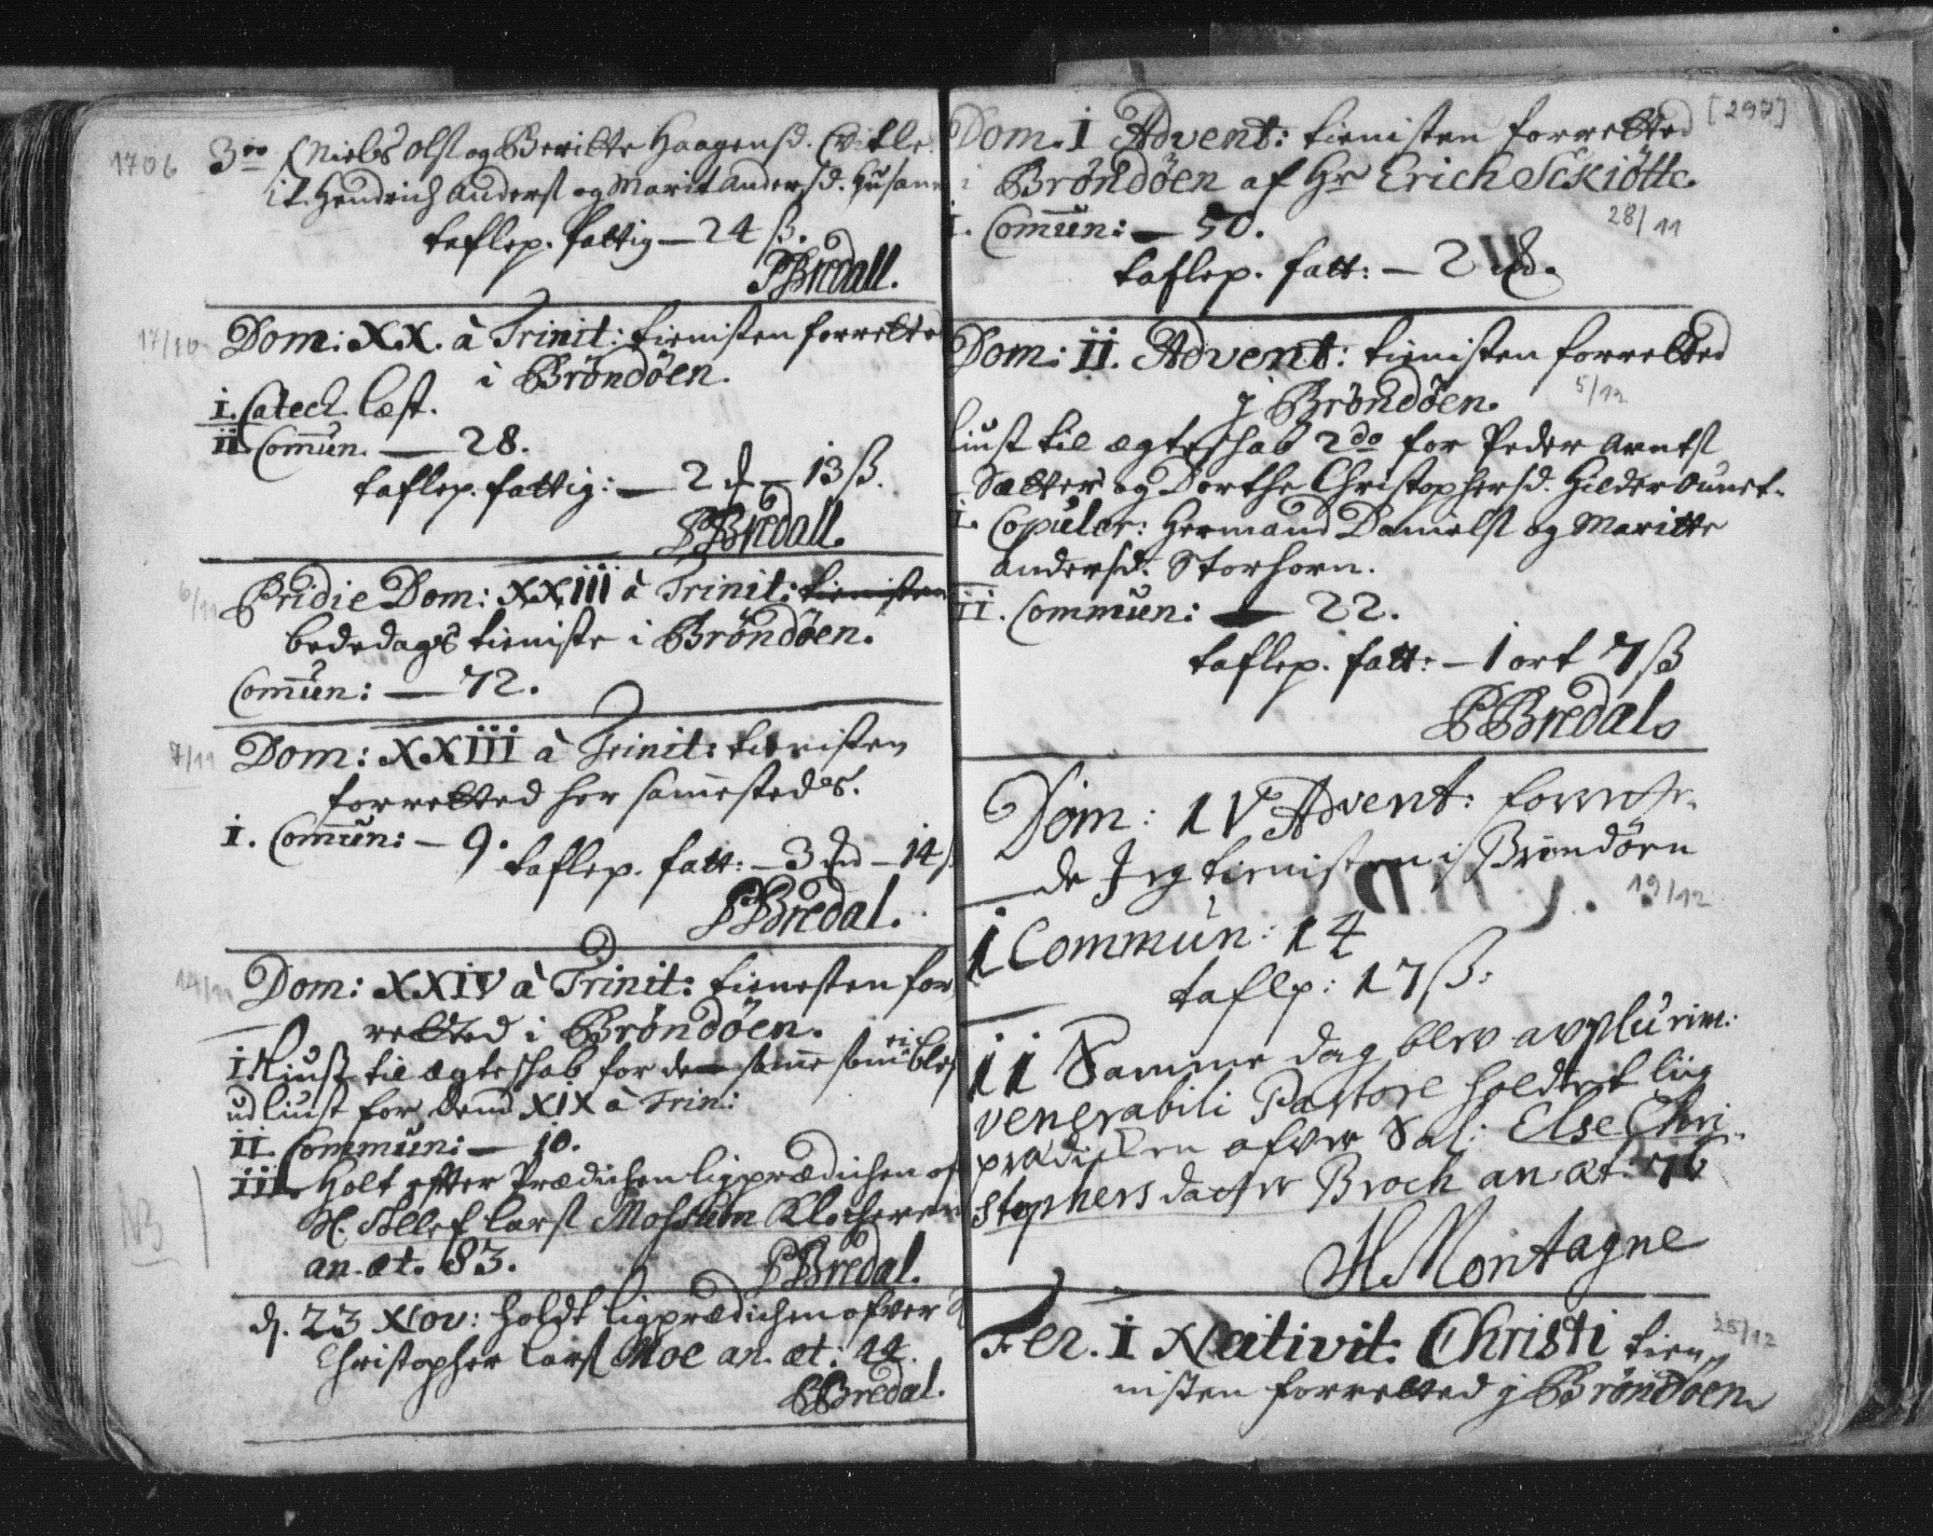 1706
3tio Niels Olss og Beritte Haagensd. Evitle
it. Hendrich Anderss og Marit Andersd. Husan
taflep. fattig — 24 ß.
PBredall.
17/10
Dom: XX. à Trinit: tienisten forretted
i Bröndöen.
I. Catech læst.
II Com̄un. — 28.
taflep. fattig: — 2 — 13 ß.
PBredall.
6/11
Pridie Dom: XXIII à Trinit: tienisten
bededags tieniste i Bröndöen.
Com̄un: — 72.
7/11
Dom: XXIII à Trinit: tienisten
forretted her sam̄esteds.
I. Com̄un: — 9.
taflep. fatt: — 3 — 14 ß
PBredal.
14/11
Dom: XXIV à Trinit: tienesten for
retted i Bröndöen.
I liust til ægteskab for de sam̄e som blef
udliust for dend XIX à Trin:
II. Commun: — 10.
III. Holt efter Prædichen ligprædichen of
NB
H. Tollef Larss Mossum Klocheren
an. æt. 83.
PBredal.
d. 23 Nov: holdt ligprædichen ofver
Christopher Larss Moe an. æt: 44.
PBredal.
[297]
Dom. I Advent: tienisten forretted
i Bröndöen af Hr Erich Sckiötte.
28/11
I. Com̄un: — 50.
taflep. fatt: — 2
Dom: II. Advent: tienisten forretted
j Bröndöen.
5/12
liust til ægteskab 2do for Peder Arntss
Sætter og Dorthe Christophersd. Hilder
I. Copuler: Hermand Danielss og Maritte
Andersd. Storhorn.
II. Commun: — 22.
taflep. fatt: — 1 ort 7 ß
PBredal
Dom: IV Advent: forret-
de Jeg tienisten i Bröndöen
19/12
I Commun: 14
taflp: 17 ß:
II Samme dag blev a plurim:
venerabili Pastore holdet liig
prædichen ofver Sal: Else Chri-
stophers datter Broch an. æt: 76
H. Montagne
Fer. I Nativit: Christi tien
25/12
nisten forretted j Bröndöen